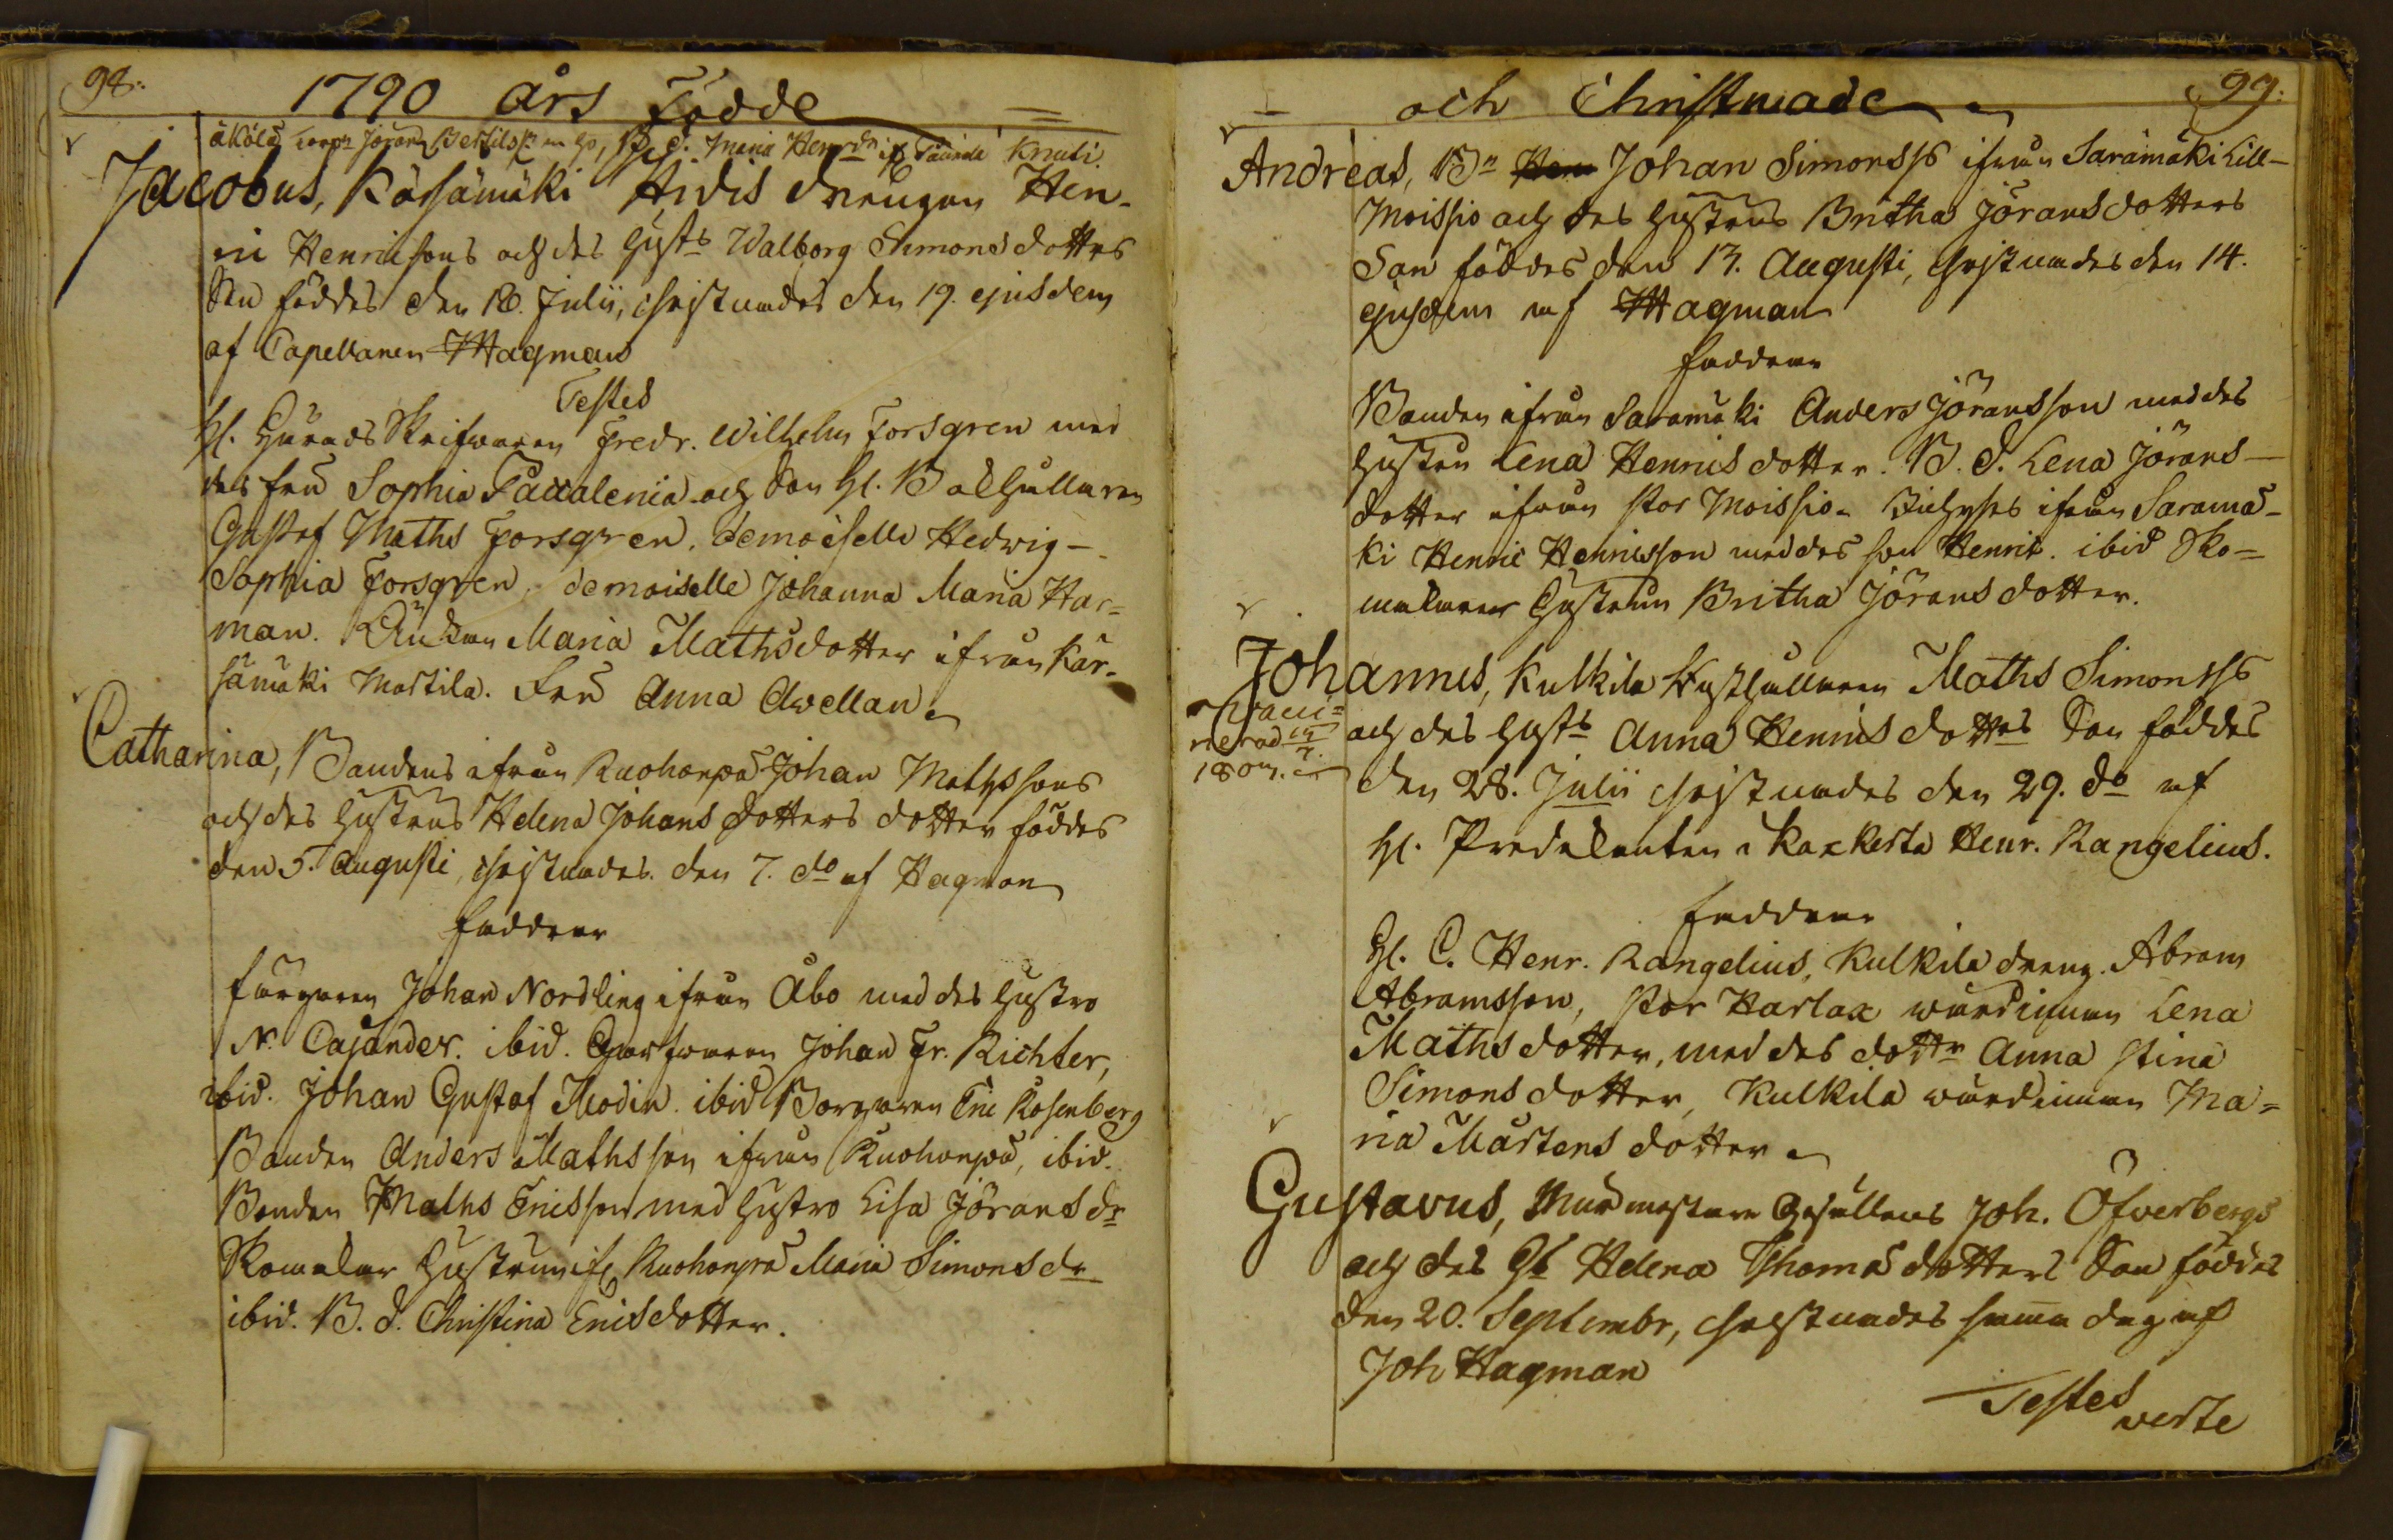 98.
1790 års Födde
åkola torp: Jöran Bertilss: m ho, B. d. Maria Henr:dr if Täinälä Knuti.
Jacobus, Kärsämäki Hidis drengen Hen-
ric Henricsons och des hust: Walborg Simonsdotters
Son föddes den 18. Julii, christnades den 19. ejusdem
af Capellanen Hagman
Testes
H. Härads Skrifwaren Fredr. Wilhelm Forsgren med
des fru Sophia Favalenia och Son H. Bokhållaren
Gustaf Maths Forsgren, demoiselle Hedvig
Sophia Forsgren, demoiselle Johanna Maria Har=
man. Änkan Maria Mathsdotter ifrån Kär-
sämäki Martila. Fru Anna Awellan
Catharina, Bondens ifrån Ruohonpä Johan Mathssons
och des hustrus Helena Johansdotters dotter föddes
den 5. Augusti, christnades den 7. do af Hagman
faddrar
färgaren Johan Nordling ifrån Åbo med des hustro
N. Cajander. ibid. Garfwaren Johan Fr. Richter,
ibid. Johan Gustaf Modin. ibid Borgaren Eric Rosenberg
Bonden Anders Mathsson ifrån Ruohonpä, ibid.
Bonden Maths Ericsson med hustro Lisa Jöransdr
Skomakar hustrun if Ruohonpä Maria Simonsdr
ibid. B. d. Christina Ericsdotter.
och Christnade
99.
Andreas, Bn Johan Simonss ifrån Saramäki Lill-
Moissio och des hustrus Britha Jöransdotters
Son föddes den 13. Augusti, christnades den 14.
ejusdem af Hagman
faddrar
Bonden ifrån Saramäki Anders Jöransson med des
hustru Lena Henricsdotter. B. d. Lena Jörans-
dotter ifrån stor Moissio. ifrån Saramä-
ki Henric Henricsson med des son Henric. ibid Sko=
makaren hustrun Britha Jöransdotter.
Johannes, Kulkila Rusthållaren Maths Simonss
Vacci=
nerad
180
och des hust: Anna Henricsdotters Son föddes
den 28. Julii christnades den 29. do af
H. Predikanten i Kakkerta Henr. Rangelius.
faddrar
H. C. Henr. Rangelius, Kulkila dreng. Abram
Abramsson, stor Harlax wärdinnan Lena
Mathsdotter, med des dottr Anna Stina
Simonsdotter, Kulkila wärdinnan Ma=
ria Mårtensdotter
Gustavus, Murmästare Gesällens Joh. Öfverbergs
och des H Helena Thomasdotters Son föddes
den 20. Septembr, christnades samma dag af
Joh Hagman
Testes
verte